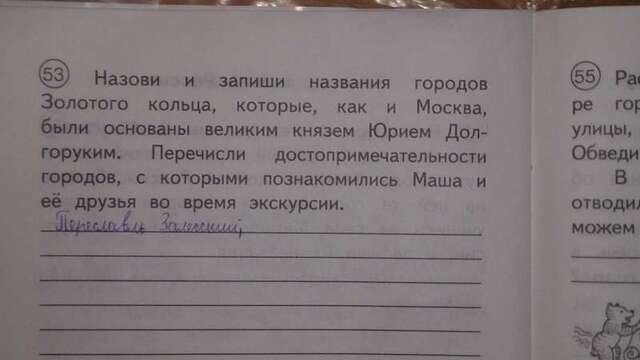 53 Назови и запиши названия городов
Золотого кольца, которые, как и Москва,
были основаны великим князем Юрием Дол-
горуким. Перечисли достопримечательности
городов, с которыми познакомились Маша и
её друзья во время экскурсии.
Переславль Залесский,
55 Рас
ре гор
улицы,
Обведи
В
отводил
можем